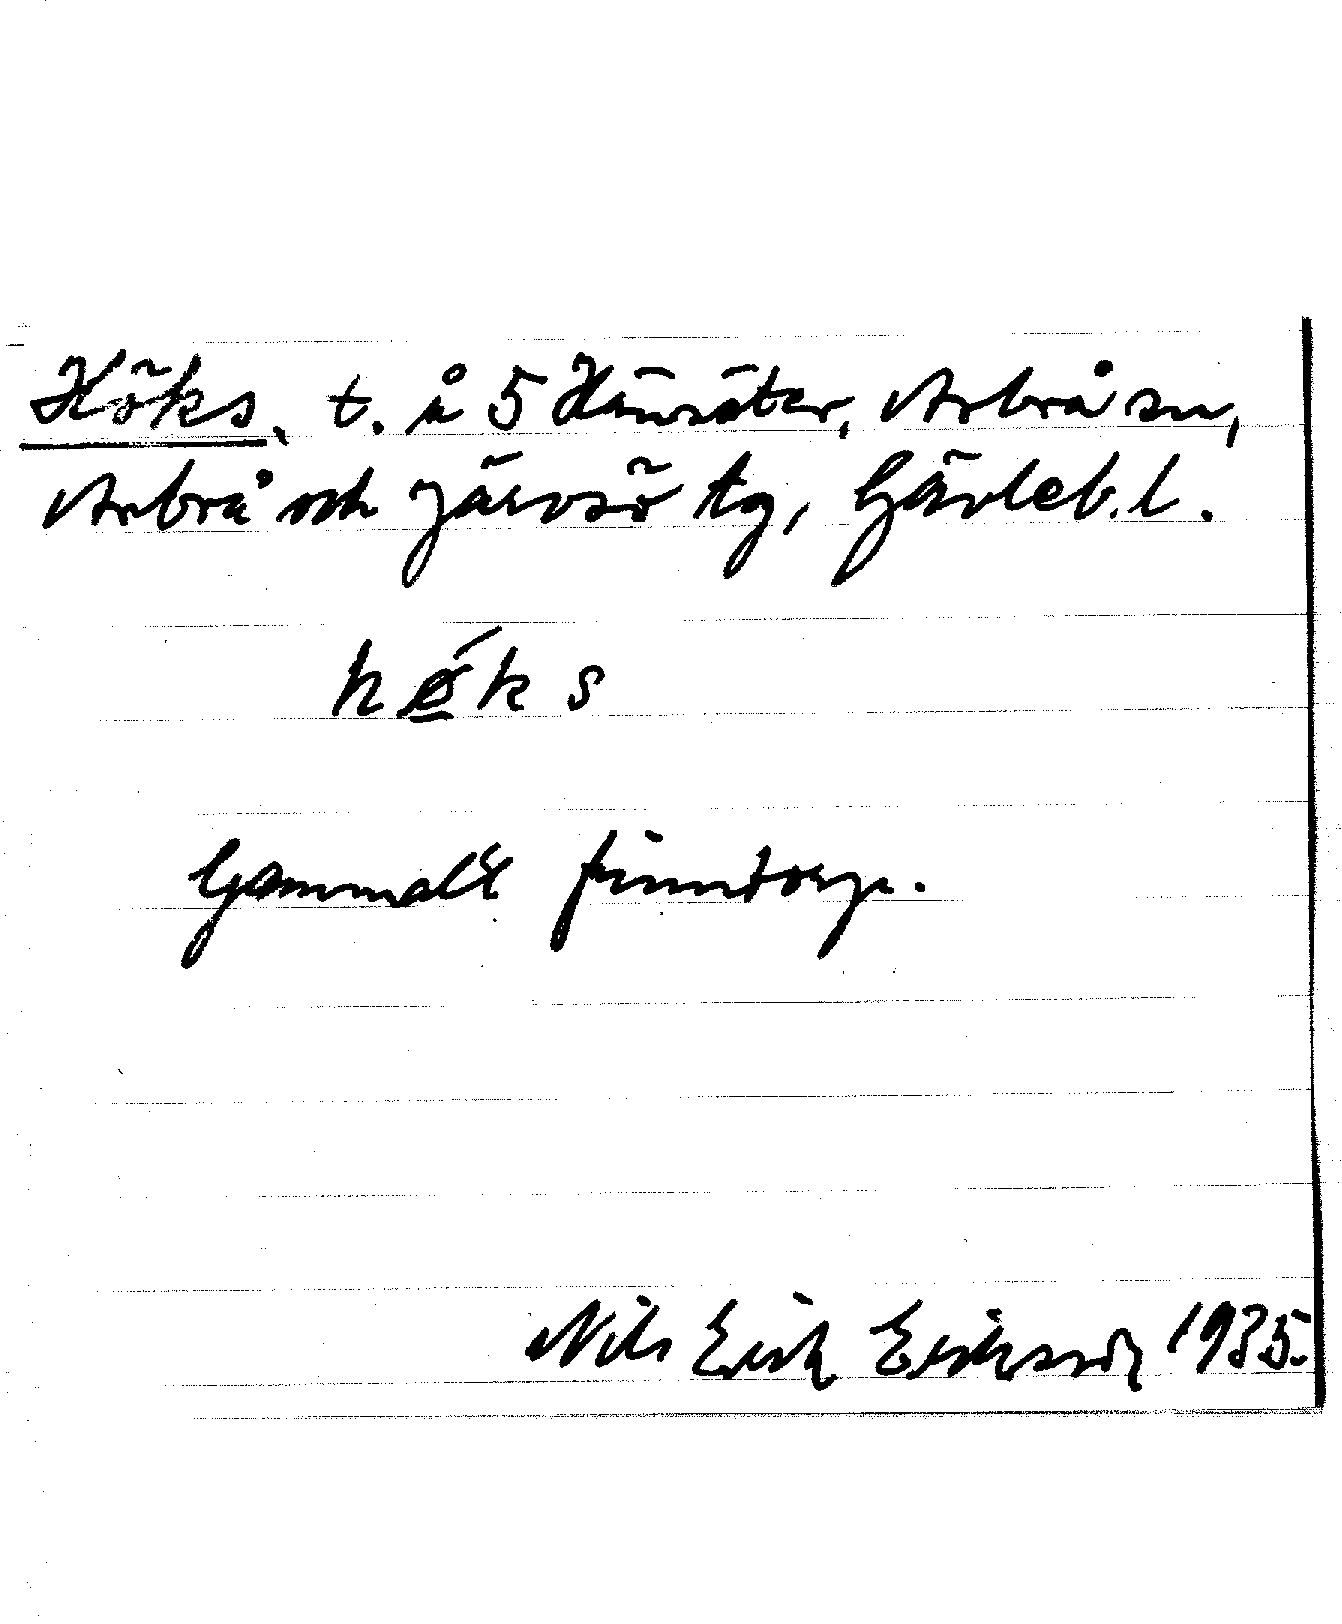 Höks, t. å 5 Hänsäter, Arbrå sn,
Arbrå och Järvsö tg, Gävleb. l.
hǿ̱ks
Gammalt finntorp.
Nils Erik Eriksson 1935.